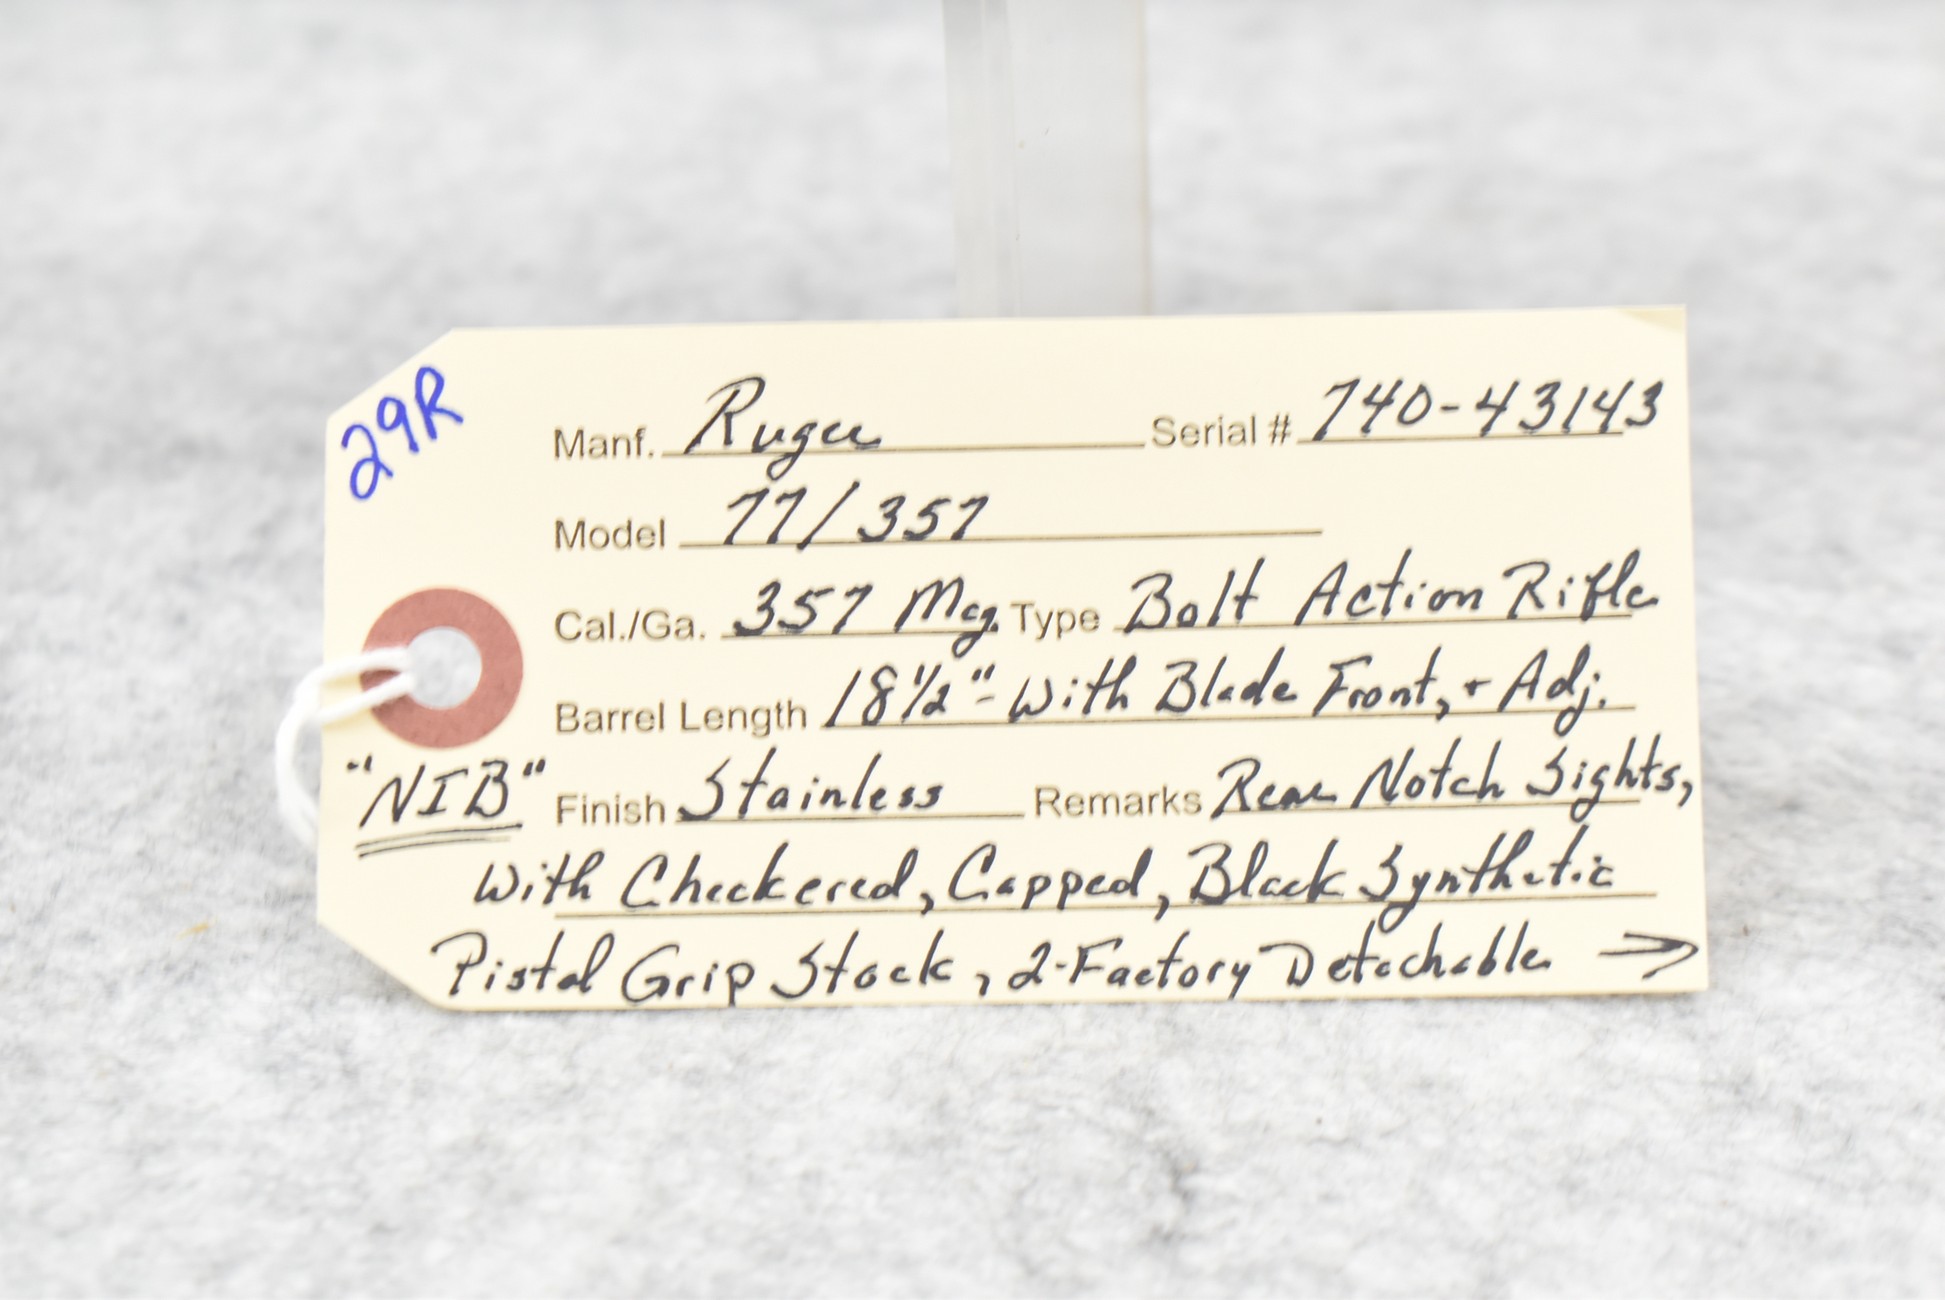 29R
Manf. Ruger Serial # 740-43143
Model 77/357
Cal./Ga. 357 Mag. Type Bolt Action Rifle
Barrel Length 18 1/2" - With Blade Front, + Adj.
"NIB" Finish Stainless Remarks Rear Notch Sights,
With Checkered, Capped, Black Synthetic
Pistol Grip Stock, 2-Factory Detachable →